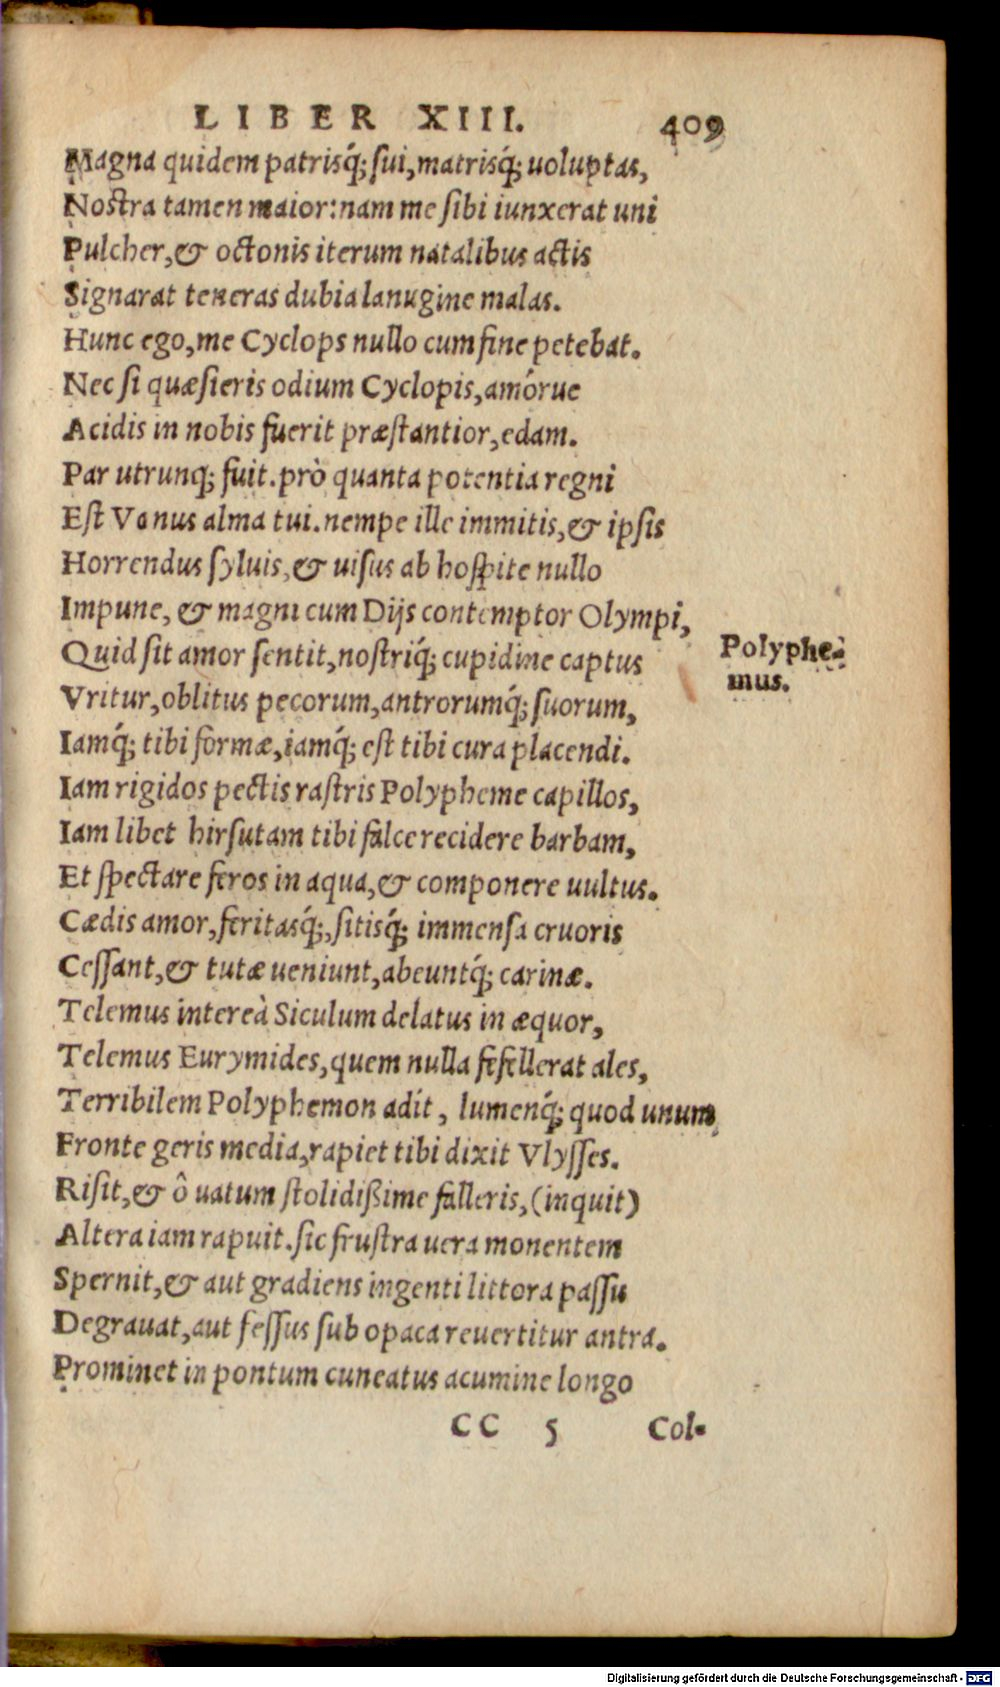 LIBER XIII. 409
Magna quidem patrisq́; ſui, matrisq́; uoluptas,
Noſtra tamen maior: nam me ſibi iunxerat uni
Pulcher, & octonis iterum natalibus actis
Signarat teneras dubia lanugine malas.
Hunc ego, me Cyclops nullo cum fine petebat.
Nec ſi quæſieris odium Cyclopis, amórue
Acidis in nobis fuerit præſtantior, edam.
Par utrunq; fuit. prò quanta potentia regni
Eſt Venus alma tui. nempe ille immitis, & ipſis
Horrendus ſyluis, & uiſus ab hoſpite nullo
Impune, & magni cum Dijs contemptor Olympi,
Quid ſit amor ſentit, noſtriq́; cupidine captus
Vritur, oblitus pecorum, antrorumq́; ſuorum,
Iamq́; tibi formæ, iamq́; eſt tibi cura placendi.
Iam rigidos pectis raſtris Polypheme capillos,
Iam libet hirſutam tibi falce recidere barbam,
Et ſpectare feros in aqua, & componere uultus.
Cædis amor, feritasq́;, ſitisq́; immenſa cruoris
Ceſſant, & tutæ ueniunt, abeuntq́; carinæ.
Telemus intereà Siculum delatus in æquor,
Telemus Eurymides, quem nulla fefellerat ales,
Terribilem Polyphemon adit, lumenq́; quod unum,
Fronte geris media, rapiet tibi dixit Vlyſſes.
Riſit, & ô uatum ſtolidißime falleris, (inquit)
Altera iam rapuit. ſic fruſtra uera monentem
Spernit, & aut gradiens ingenti littora paſſu
Degrauat, aut feſſus ſub opaca reuertitur antra.
Prominet in pontum cuneatus acumine longo
CC 5 Col-
Polyphe-
mus.
Digitalisierung gefördert durch die Deutsche Forschungsgemeinschaft - DFG